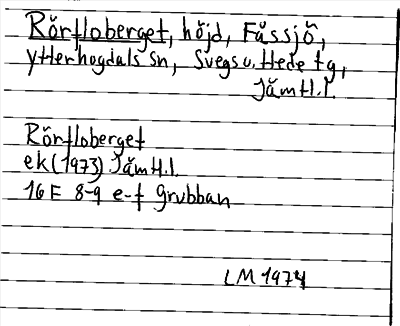 Rörfloberget, höjd, Fåssjö,
Ytterhogdals sn, Svegs o. Hede tg,
Jämtl.l.
Rörfloberget
ek (1973) Jämtl.l.
16F 8-9 e-f Grubban
LM 1974